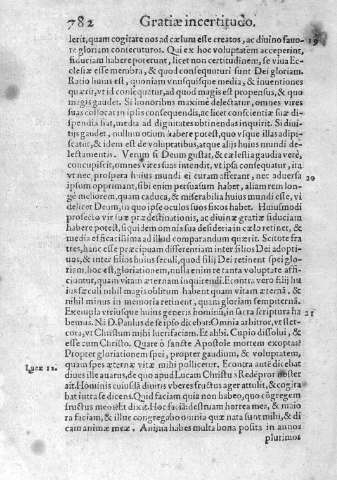 782 Gratiæ incertitudo.
lerit, quam cogitare nos ad cælum esse creatos, ac diuino fauo- 19
re gloriam consecuturos. Qui ex hoc voluptatem acceperint,
fiduciam habere poterunt, licet non certitudinem, se viua Ec-
clesiæ esse membra, & quod consequuturi sunt Dei gloriam.
Ratio huius est, quoniam vnusquisque media, & inuentiones
quærit, vt id consequatur, ad quod magis est propensus, & quo
magis gaudet. Si honoribus maxime delectatur, omnes vires
suas collocat in iplis consequendis, ac licet conscientiæ suæ di-
spendia fiat, media ad dignitates obtinendas inquirit. Si diui-
tiis gaudet, nullum otium habere potest, quo vsque illas adipi-
scatur, & idem est de voluptatibus, atque aliis huius mundi de-
lectamentis. Verum si Deum gustat, & cælestia gaudia veré,
concupiscit, omnes vires suas intendit, vt ipsa consequatur, ita
vt nec prospera huius mundi ei curam afferant, nec aduersa 20
ipsum opprimant, sibi enim persuasum habet, aliam rem lon-
gè meliorem, quam caduca, & miserabilia huius mundi esse, vi
delicet Deum, in quo ipse oculos suos fixos habet. Huiusmodi
profecto vir suæ prædestinationis, ac diuinæ gratiæ fiduciam
habere potest, siquidem omnia sua desideria in cælo retinet, &
media efficacissima ad illud comparandum quærit. Scitote fra
tres, hanc esse præcipuam differentiam inter filios Dei adopti-
uos, & inter filios huius seculi, quod filij Dei retinent spei glo-
riam, hoc est, gloriationem, nulla enim re tanta voluptate affi-
ciuntur, quam vitam æternam inquirendi. Econtra verò filij hu
ius sæculi nihil magis oblitum habent quam vitam æternā, &
nihil minus in memoria retinent, quam gloriam sempiternā.
Exempla vtriusque huius generis hominū, in sacra scriptura ha 21
bemus. Nā D. Paulus de se ipso dicebat: Omnia arbitror, vt ster-
cora, vt Christum mihi lucrifaciam. Et alibi. Cupio dissolui, &
esse cum Christo. Quare ò sancte Apostole mortem exoptas?
Propter gloriationem spei, propter gaudium, & voluptatem,
quam spes æternæ vitæ mihi pollicetur. Econtra autē dicebat
Lucæ 12. diues ille auarus, de quo apud Lucam Christus Redēptor noster
ait. Hominis cuiusdā diuitis vberes fructus ager attulit, & cogita
bat intra se dicens. Quid faciam quia non habeo, quo cōgregem
fructus meos? Et dixit. Hoc faciā: destruam horrea mea, & maio
ra faciam, & illuc congregabo omnia quæ nata sunt mihi, & di
cam animæ meæ. Anima habes multa bona posita in annos
plurimos